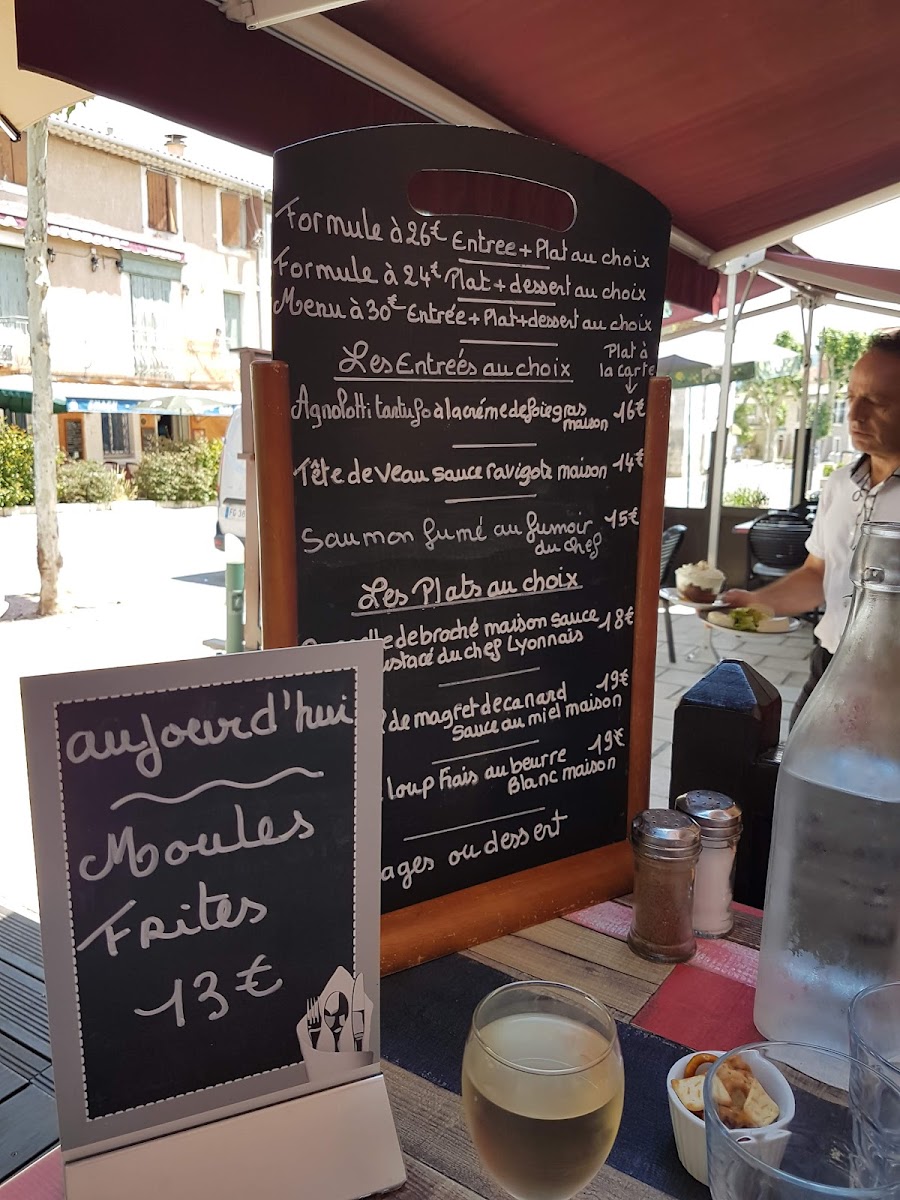 Formule à 26€ Entree + Plat au choix
Formule à 24€ Plat + dessert au choix
Menu à 30€ Entrée + Plat + dessert au choix
Les Entreés au choix
Plat à
la carte
Agnolotti tartufo à la créme de foie gras
maison 16€
Tête de veau sauce ravigote maison 14€
Saumon fumé au fumoir 15€
du chef
Les Plats au choix
de broché maison sauce 18€
du chef Lyonnais
de magret de canard 19€
Sauce au miel maison
loup Frais au beurre 19€
Blanc maison
ages ou dessert
aujourd'hui
Moules
Frites
13€